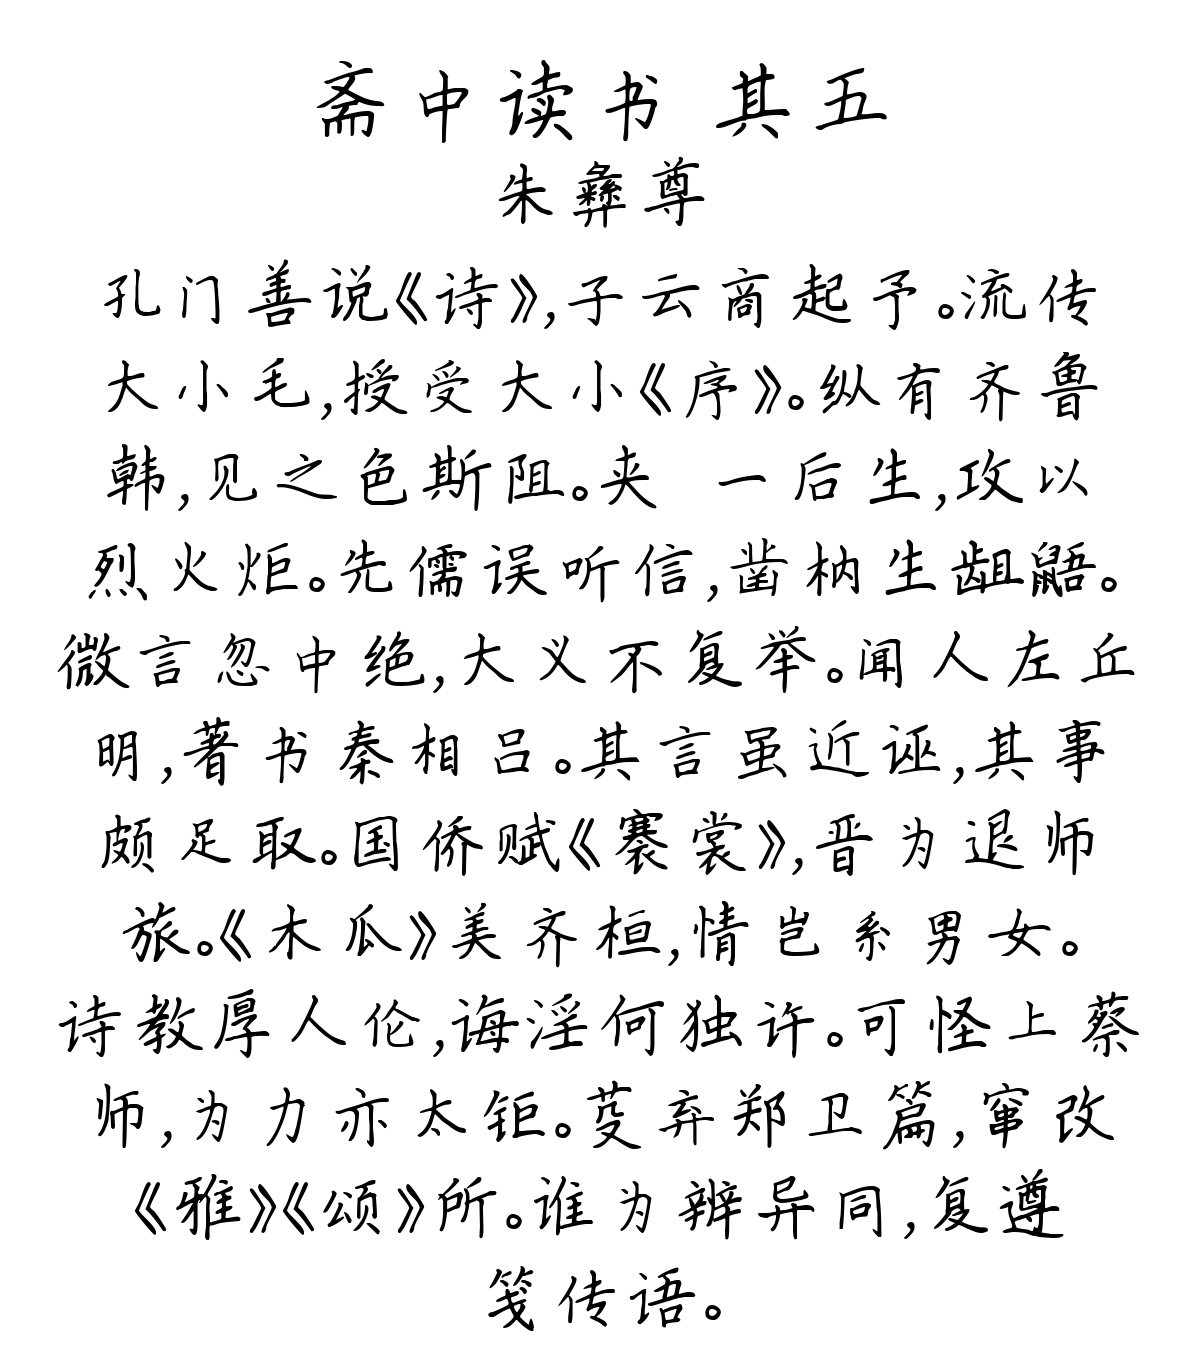 斋中读书 其五
朱彝尊
孔门善说《诗》,子云商起予。流传
大小毛,授受大小《序》。纵有齐鲁
韩,见之色斯阻。夹 一后生,攻以
烈火炬。先儒误听信,凿枘生龃鼯。
微言忽中绝,大义不复举。闻人左丘
明,著书秦相吕。其言虽近诬,其事
颇足取。国侨赋《褰裳》,晋为退师
旅。《木瓜》美齐桓,情岂系男女。
诗教厚人伦,诲淫何独许。可怪上蔡
师,为力亦太钜。芟弃郑卫篇,窜改
《雅》《颂》所。谁为辨异同,复遵
笺传语。